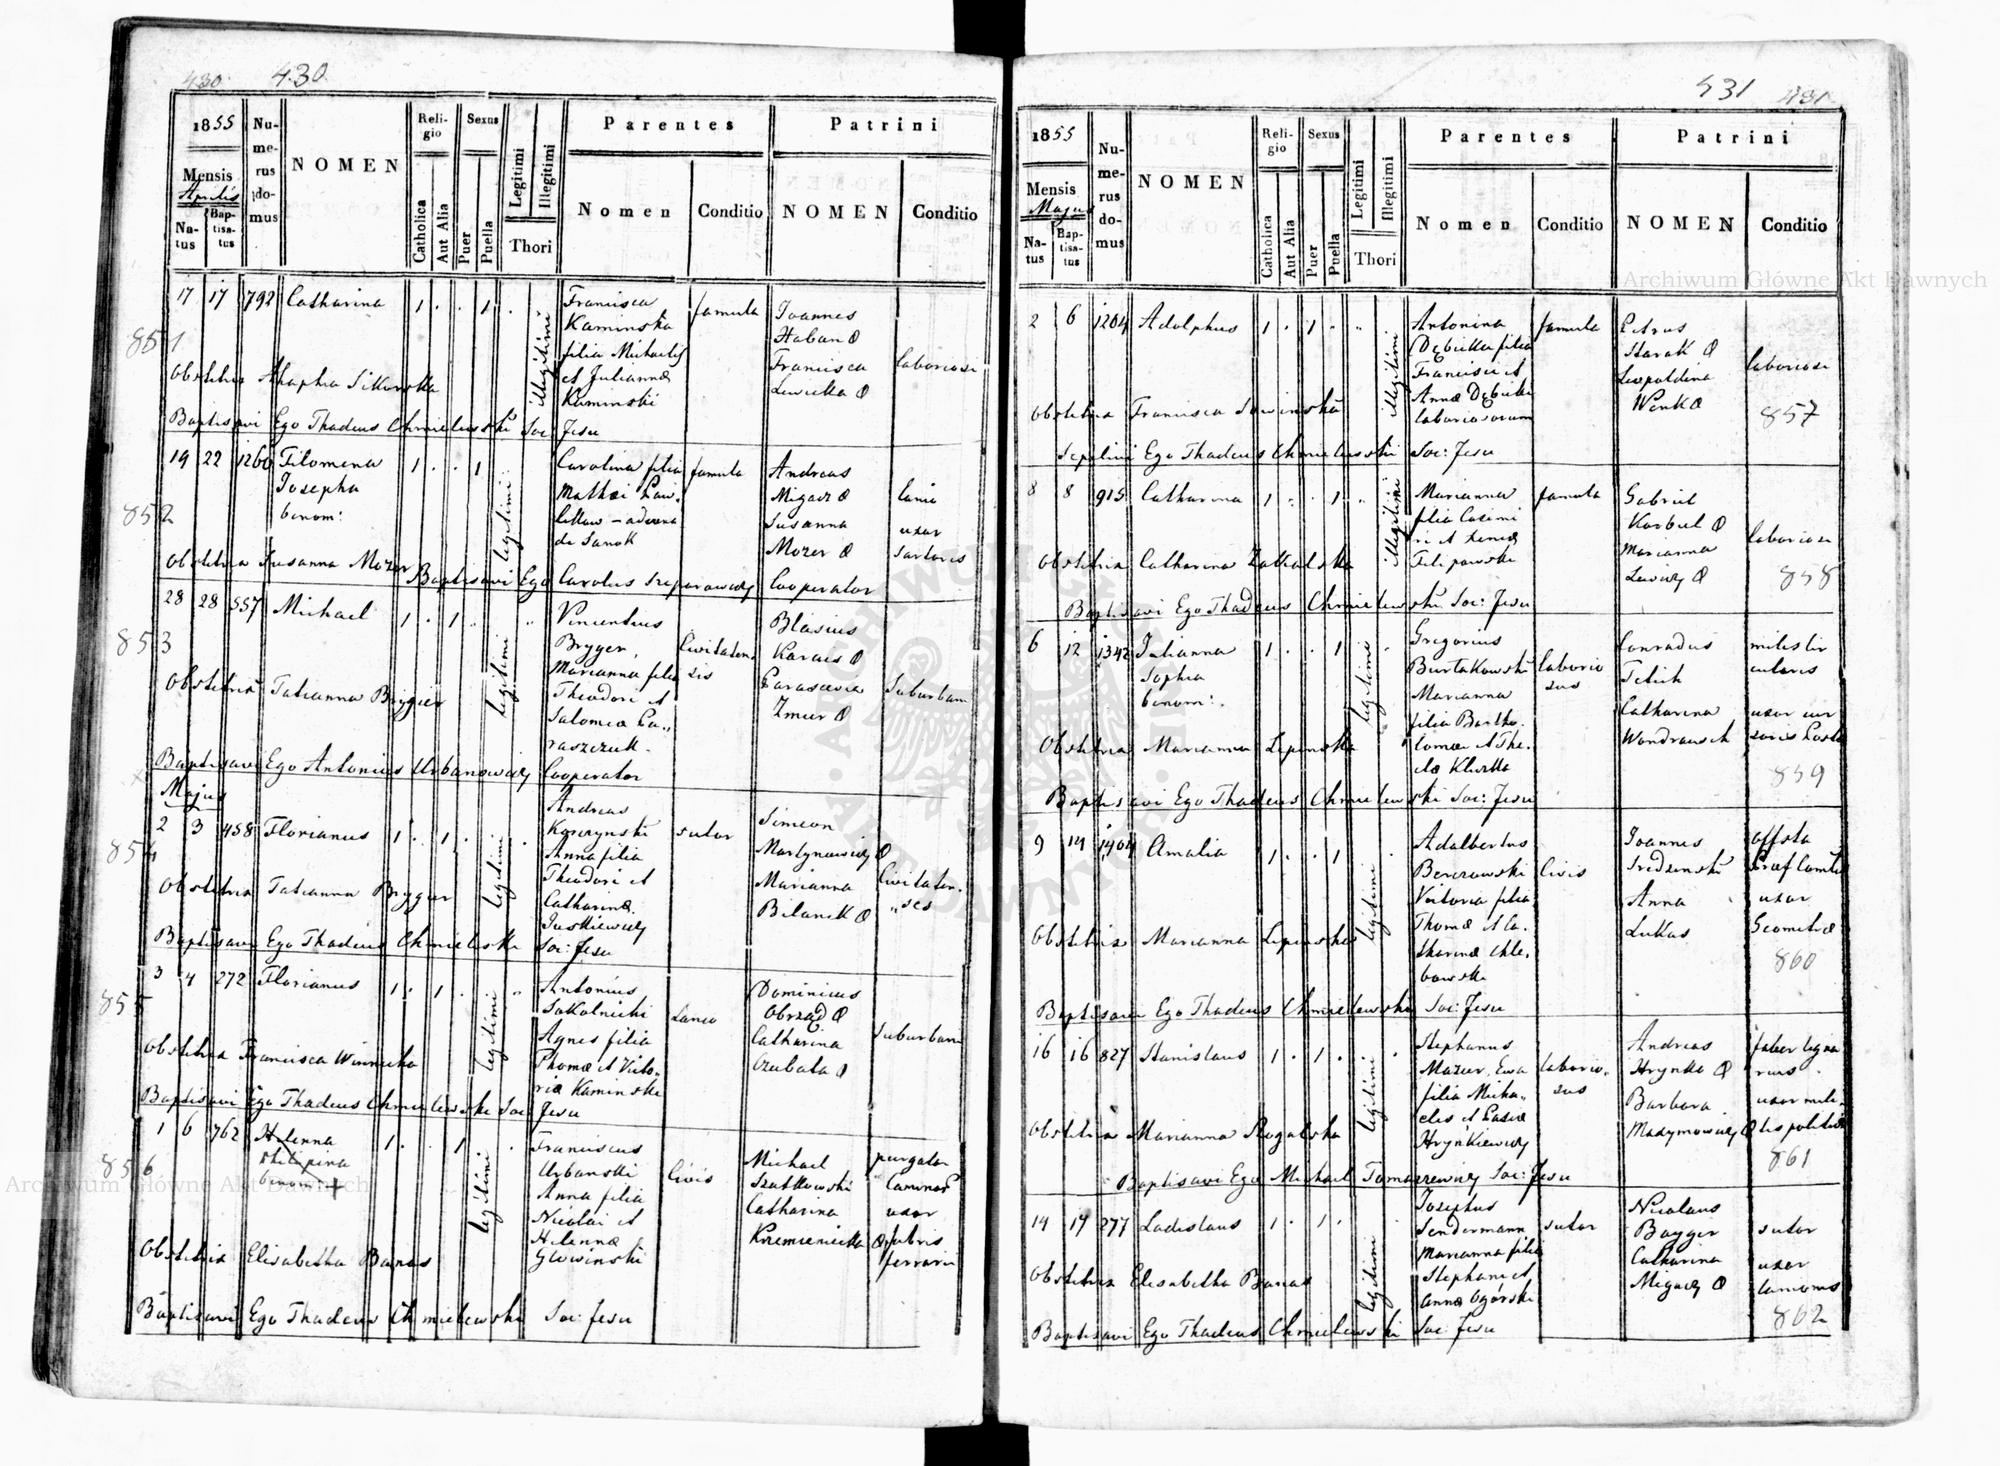 430 430
1855
Mensis
Aprilis
Natus
Baptisatus
Numerus domus
NOMEN
Religio
Catholica
Aut Alia
Sexus
Puer
Puella
Legitimi
Illegitimi
Thori
Parentes
Nomen
Conditio
Patrini
NOMEN
Conditio
851
17 17 792 Catharina 1 . . 1 .
illegitimi
Francisca
Kaminska
filia Michaelis
et Julianna
Kaminski
famula
Joannes
Haban
Francisca
Lewicka
laboriosi
Obstetrix Ahaphia Sikorska
Baptisavi Ego Thadeus Chmielewski Soc: Jesu
852
19 22 1260 Filomena
Josepha
binom:
1 . . 1
legitimi
Carolina filia
Mathæi
de Sanok
famula
Andreas
Migacz
Susanna
Mozer
lanio
uxor
sartoris
Obstetrix Susanna Mozer
Baptisavi Ego Carolus Cooperator
853
28 28 557 Michael 1 . 1
legitimi
Vincentius
Bryger,
Marianna filia
Theodori et
Salomea
raszczuk
Civitaten
sis
Blasius
Karais
Parascevia
Zmur
Suburbani
Obstetrix Tatianna Brygier
Baptisavi Ego Antonius Urbanowicz Cooperator
Majus
854
2 3 458 Florianus 1 . 1 .
legitimi
Andreas
Koszynski
Anna filia
Theodori et
Catharina
Juskiewicz
sutor
Simeon
Martynowicz
Marianna
Bilanik
Civitaten
ses
Obstetrix Tatianna Brygier
Baptisavi Ego Thadeus Chmielewski Soc: Jesu
855
3 4 272 Florianus 1 . 1 .
legitimi
Antonius
Sokolnicki
Agnes filia
Thomæ et Victo-
riæ Kaminski
Lanio
Dominicus
Obrząd
Catharina
Czubata
Suburbani
Obstetrix Francisca Winnicka
Baptisavi Ego Thadeus Chmielewski Soc Jesu
856
1 6 762 Helenna
Philipina
binom:
1 . . 1 .
legitimi
Franciscus
Urbanski
Anna filia
Nicolai et
Helennæ
Glowinski
Civis
Michael
Szatkowski
Catharina
Krzemieniecka
purgator
Caminor
uxor
fabris
ferrarii
Obstetrix Elisabetha Banas
Baptisavi Ego Thadeus Chmielewski Soc: Jesu
431 431
1855
Mensis
Majus
Natus
Baptisatus
Numerus domus
NOMEN
Religio
Catholica
Aut Alia
Sexus
Puer
Puella
Legitimi
Illegitimi
Thori
Parentes
Nomen
Conditio
Patrini
NOMEN
Conditio
2 6 1204 Adolphus 1 . 1
illegitimi
Antonina
Dębicka filia
Francisci et
Annæ Dębicki
laboriosorum
famula
Petrus
Harak
Leopoldina
Wenk
laboriosi
857
Obstetrix Francisca Sowinska
Ego Thadeus Chmielewski Soc: Jesu
8 8 915 Catharina 1 . . 1
illegitimi
Marianna
filia Casimi
ri et
Filipowski
famula
Gabriel
Korbiel
Marianna
Lewicz
laboriosi
858
Obstetrix Catharina Zakalska
Baptisavi Ego Thadeus Chmielewski Soc: Jesu
6 12 1342 Julianna
Sophia
binom:
1 . . 1
legitimi
Gregorius
Burtakowski
Marianna
filia Bartho-
lomæi et The-
clæ
laborio
sus
Conradus
Tetich
Catharina
Wondrausch
milit
cularis
uxor cur
soris
859
Obstetrix Marianna Lipinska
Baptisavi Ego Thadeus Chmielewski Soc: Jesu
9 14 1404 Amalia 1 . . 1
legitimi
Adalbertus
Berezowski
Victoria filia
Thomæ et Ca-
tharinæ Chle-
bowski
Civis
Joannes
Sredzinski
Anna
Lukas
uxor
Geometræ
860
Obstetrix Marianna Lipinska
Baptisavi Ego Thadeus Chmielewski Soc: Jesu
16 16 827 Stanislaus 1 . 1 .
legitimi
Stephanus
Mazur, Eva
filia Micha-
elis et
Hryńkiewicz
laborio-
sus
Andreas
Hrynko
Barbara
Madymowicz
faber ligna
rius
uxor mili-
tis politiæ
861
Obstetrix Marianna Rogalska
Baptisavi Ego Michael Tomaszewicz Soc: Jesu
14 17 277 Ladislaus 1 . 1 .
legitimi
Josephus
Sendermann
Marianna filia
Stephani et
Annæ Ogórski
sutor
Nicolaus
Brygier
Catharina
Migacz
sutor
uxor
lanionis
862
Obstetrix Elisabetha Banas
Baptisavi Ego Thadeus Chmielewski Soc: Jesu
Archiwum Główne Akt Dawnych
Archiwum Główne Akt Dawnych